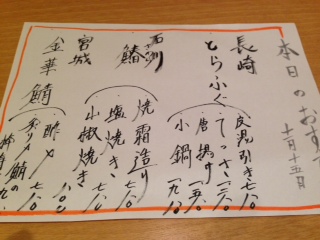 本日のおすす
十月十五日
長崎
とらふぐ
皮湯引き 七八〇
てっさ 一三八〇
唐揚げ 一五八〇
小鍋 一九八〇
鰆
焼霜造り 七八〇
塩焼き 七八〇
小椒焼き 七八〇
宮城
金華鯖
酢〆
炙り〆鯖の